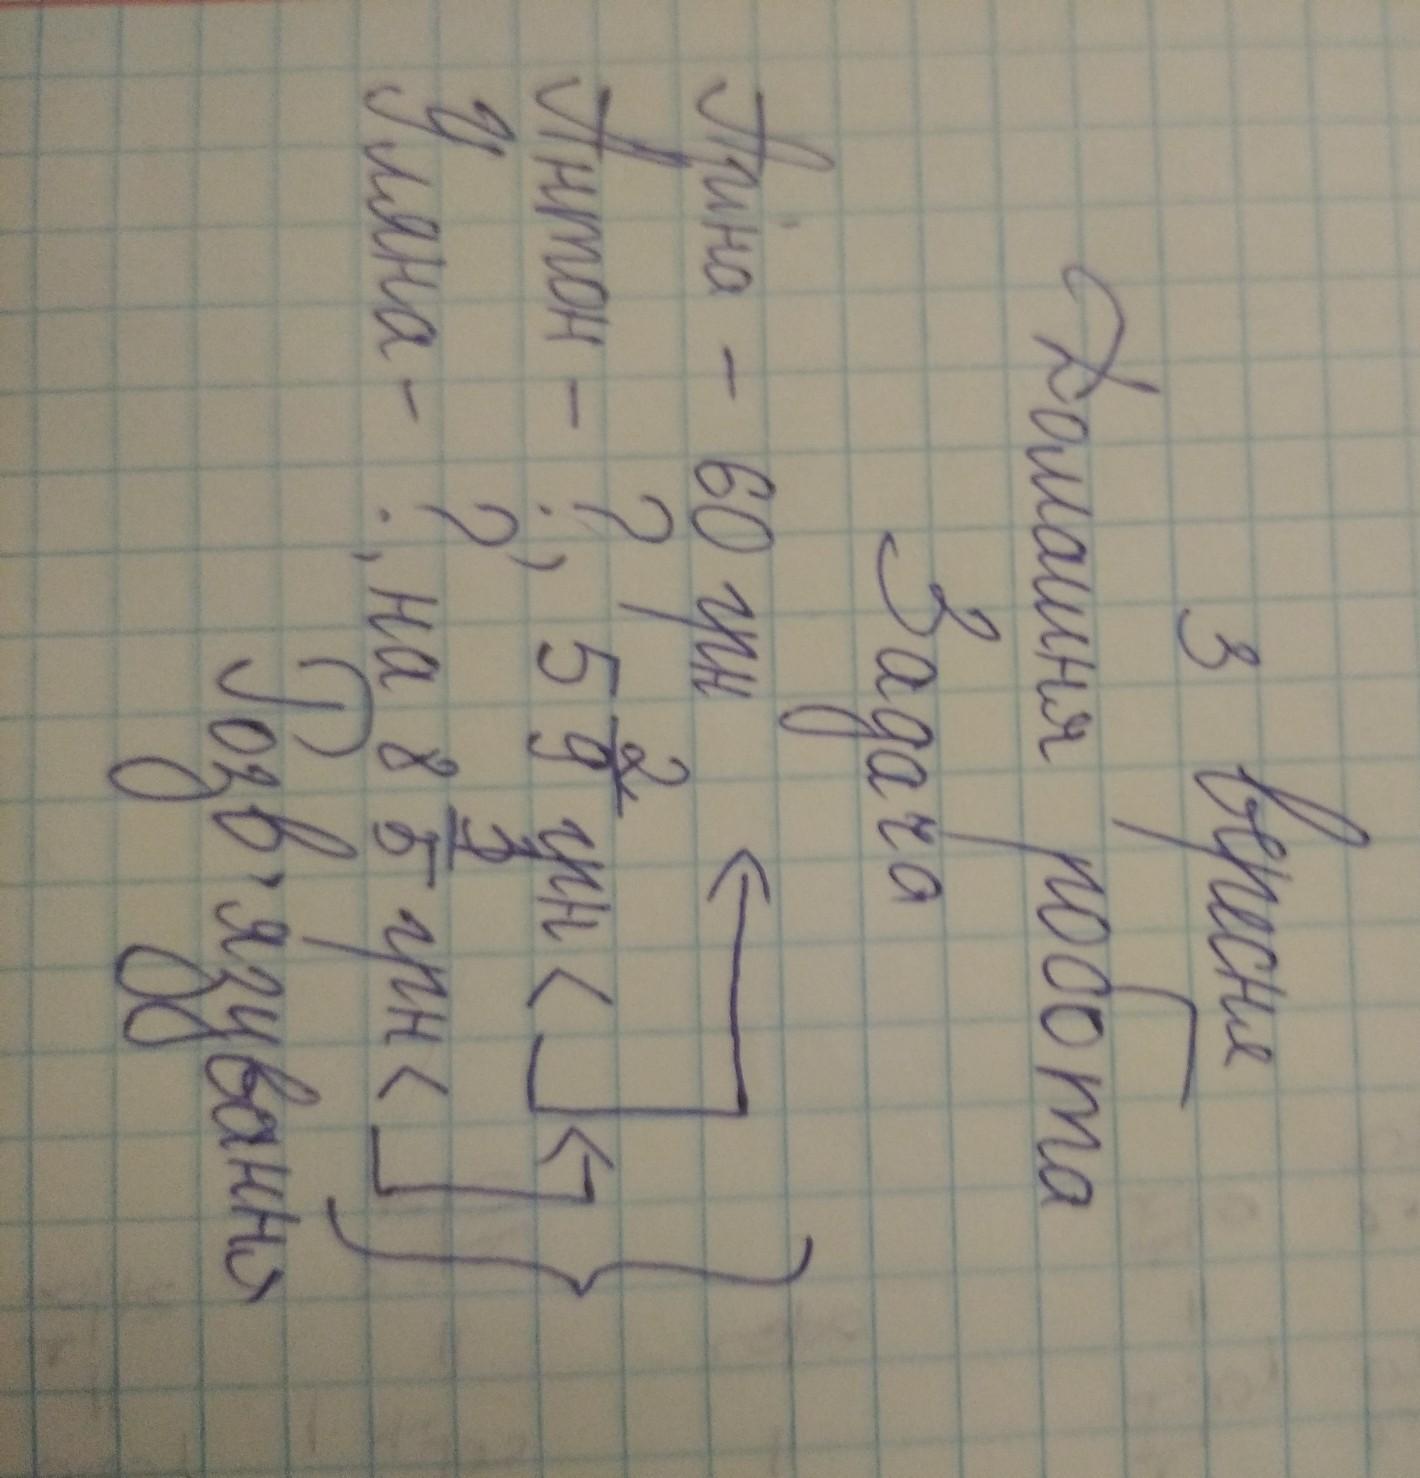 3 вересня
Домашня робота
Задача
Аріна - 60 грн
Антон - ?, 5 2/9 грн <
Уляна - ?, на 8 3/5 грн <
Розв'язування